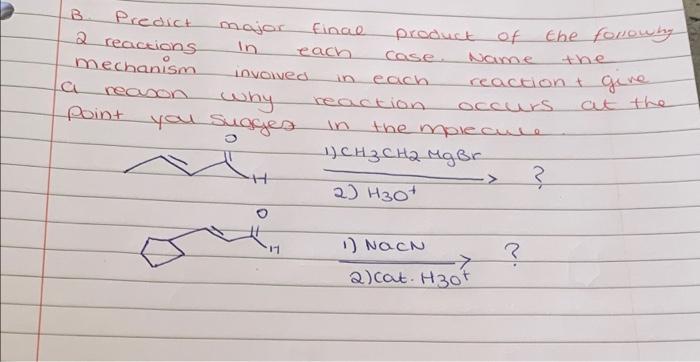 B. Predict major final product of the following
2 reactions in each case. Name the
mechanism involved in each reaction + give
a reason why reaction occurs at the
point you suggest in the molecule.
O
H
1) CH3CH2MgBr
2) H3O+
?
O
H
1) NaCN
2) Cat. H3O+
?